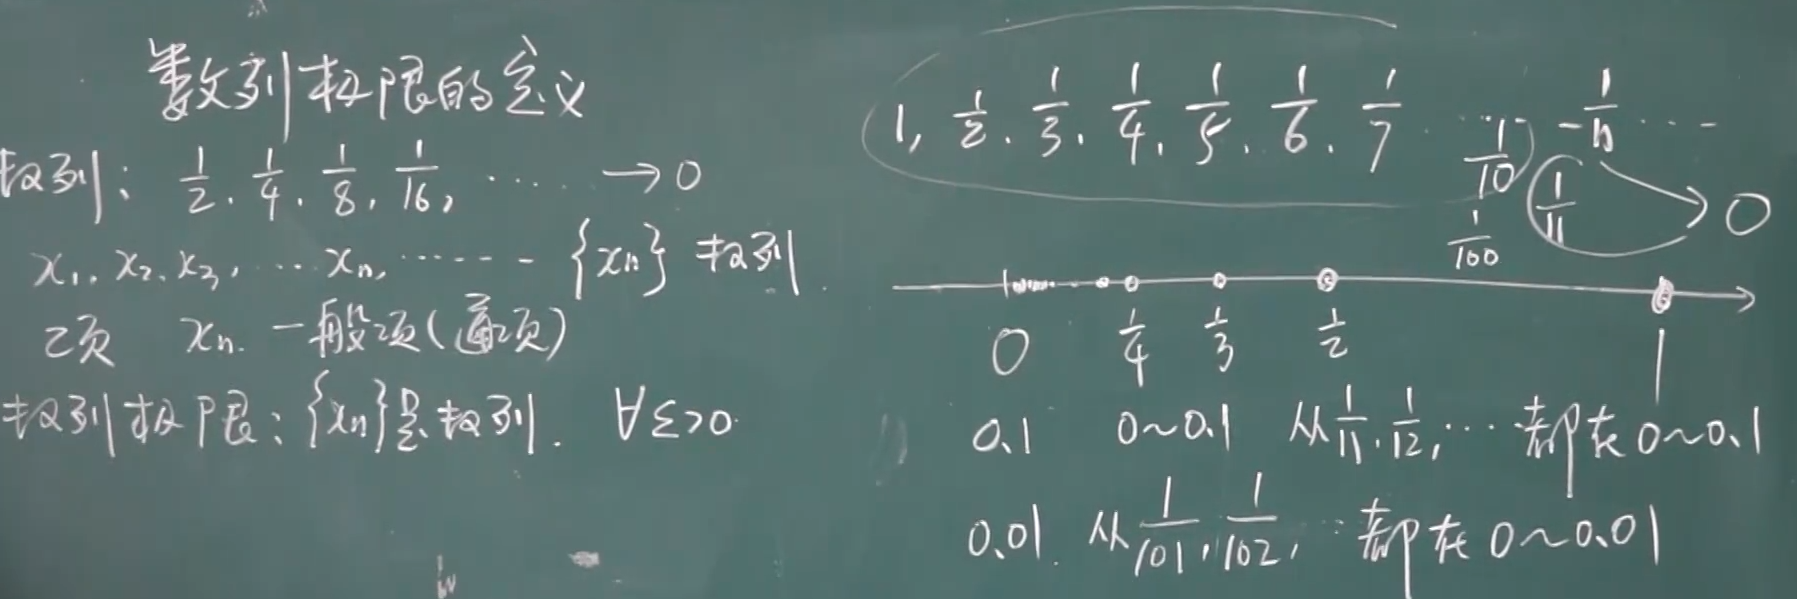 数列极限的定义
数列: 1/2, 1/4, 1/8, 1/16, ...... → 0
x₁, x₂, x₃, ... xₙ, ....... {xₙ} 数列.
项 xₙ. 一般项(通项)
数列极限: {xₙ}是数列. ∀ε>0
1, 1/2, 1/3, 1/4, 1/5, 1/6, 1/7 ... 1/10 1/n ...
1/100 1/11 → 0
0 1/4 1/3 1/2 1
0.1 0~0.1 从1/11, 1/12, ... 都在0~0.1
0.01. 从1/101, 1/102, ... 都在0~0.01